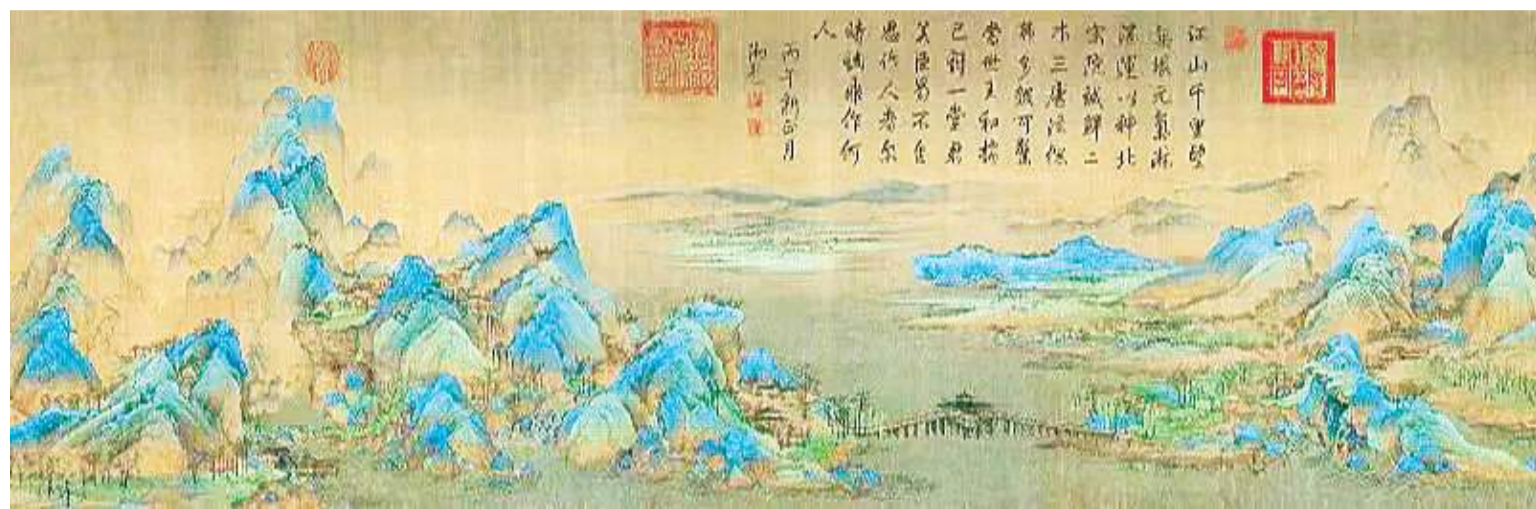 江山千里望
無垠元氣淋
漓運以神北
宋院誠鮮二
本三唐法從
弗多皴可驚
當世王和趙
已訝一堂君
若臣曷不自
思作人者爾
時調鼎作何
人
丙午新正月
御題